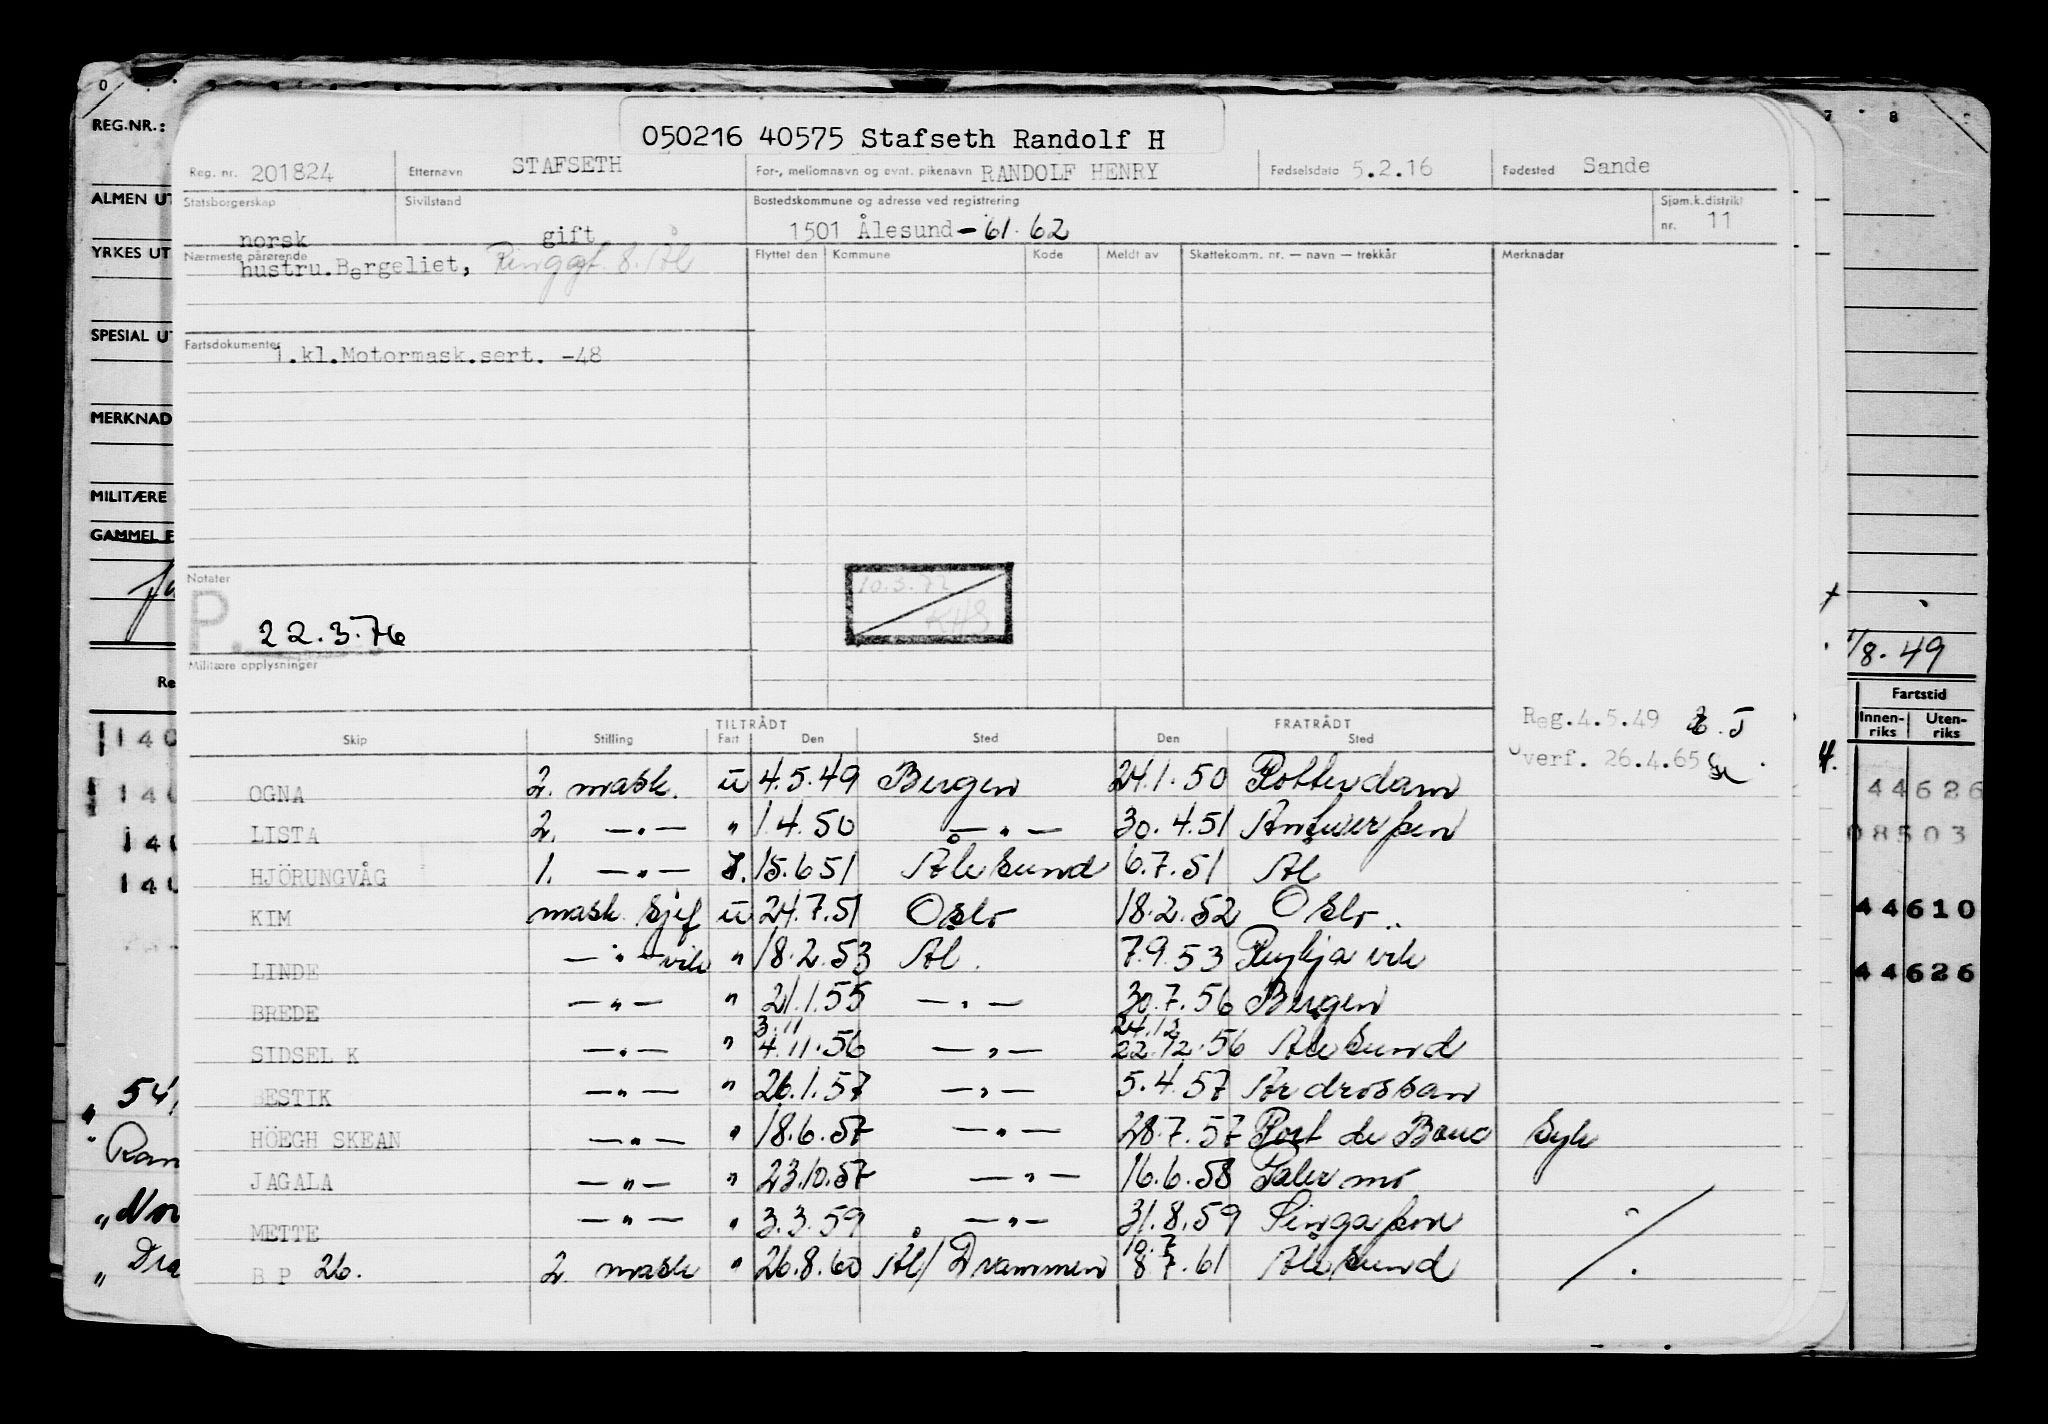 050216 40575 Stafseth Randolf H
Reg. nr. 201824 Etternavn STAFSETH For-, mellomnavn og evnt. pikenavn RANDOLF HENRY Fødselsdato 5.2.16 Fødested Sande
Statsborgerskap norsk Sivilstand gift Bostedskommune og adresse ved registrering 1501 Ålesund - 61. 62 Sjøm.k.distrikt nr. 11
Nærmeste pårørende hustru.Bergeliet, Ringgt. 8. Ål
Flyttet den Kommune Kode Meldt av Skattekomm. nr. — navn — trekkår Merknader
Fartsdokumenter 1.kl.Motormask.sert. -48
Notater
P. 22.3.76
10.3.72
KHS
Militære opplysninger
Reg.4.5.49
verf. 26.4.65
TILTRÅDT FRATRÅDT
Skip Stilling Fart Den Sted Den Sted
OGNA 2. mask. u 4.5.49 Bergen 24.1.50 Rotterdam
LISTA 2. —"— " 1.4.50 —"— 30.4.51 Antwerpen
HJÖRUNGVÅG 1. —"— 15.6 51 Ålesund 6.7.51 Ål
KIM mask. sjef u 24.7.51 Oslo 18.2.52 Oslo
LINDE —"— vik " 18.2.53 Ål. 7.9.53 Reykjavik
BREDE —"— " 21.1.55 —"— 30.7.56 Bergen
3.11 24.12
SIDSEL K —"— " 4.11.56 —"— 22.12.56 Ålesund
BESTIK —"— " 26.1.57 —"— 5.4.57 Ardrossan
HÖEGH SKEAN —"— " 18.6.57 —"— 28.7.57 Port de Bouc Syk
JAGALA —"— " 23.10.57 —"— 16.6.58 Palermo
METTE —"— " 3.3.59 —"— 31.8.59 Singapore
10.7
B P 26. 2 mask " 26.8.60 Ål/Drammen 8 7.61 Ålesund
REG.NR.:
ALMEN UT
YRKES UT
SPESIAL UT
MERKNAD
MILITÆRE
GAMMEL F
Re
140
140
140
140
54,
Ran
" Nor
" Dra
7 8
/8.49
Fartstid
Innen-riks Uten-riks
44626
08503
44610
44626